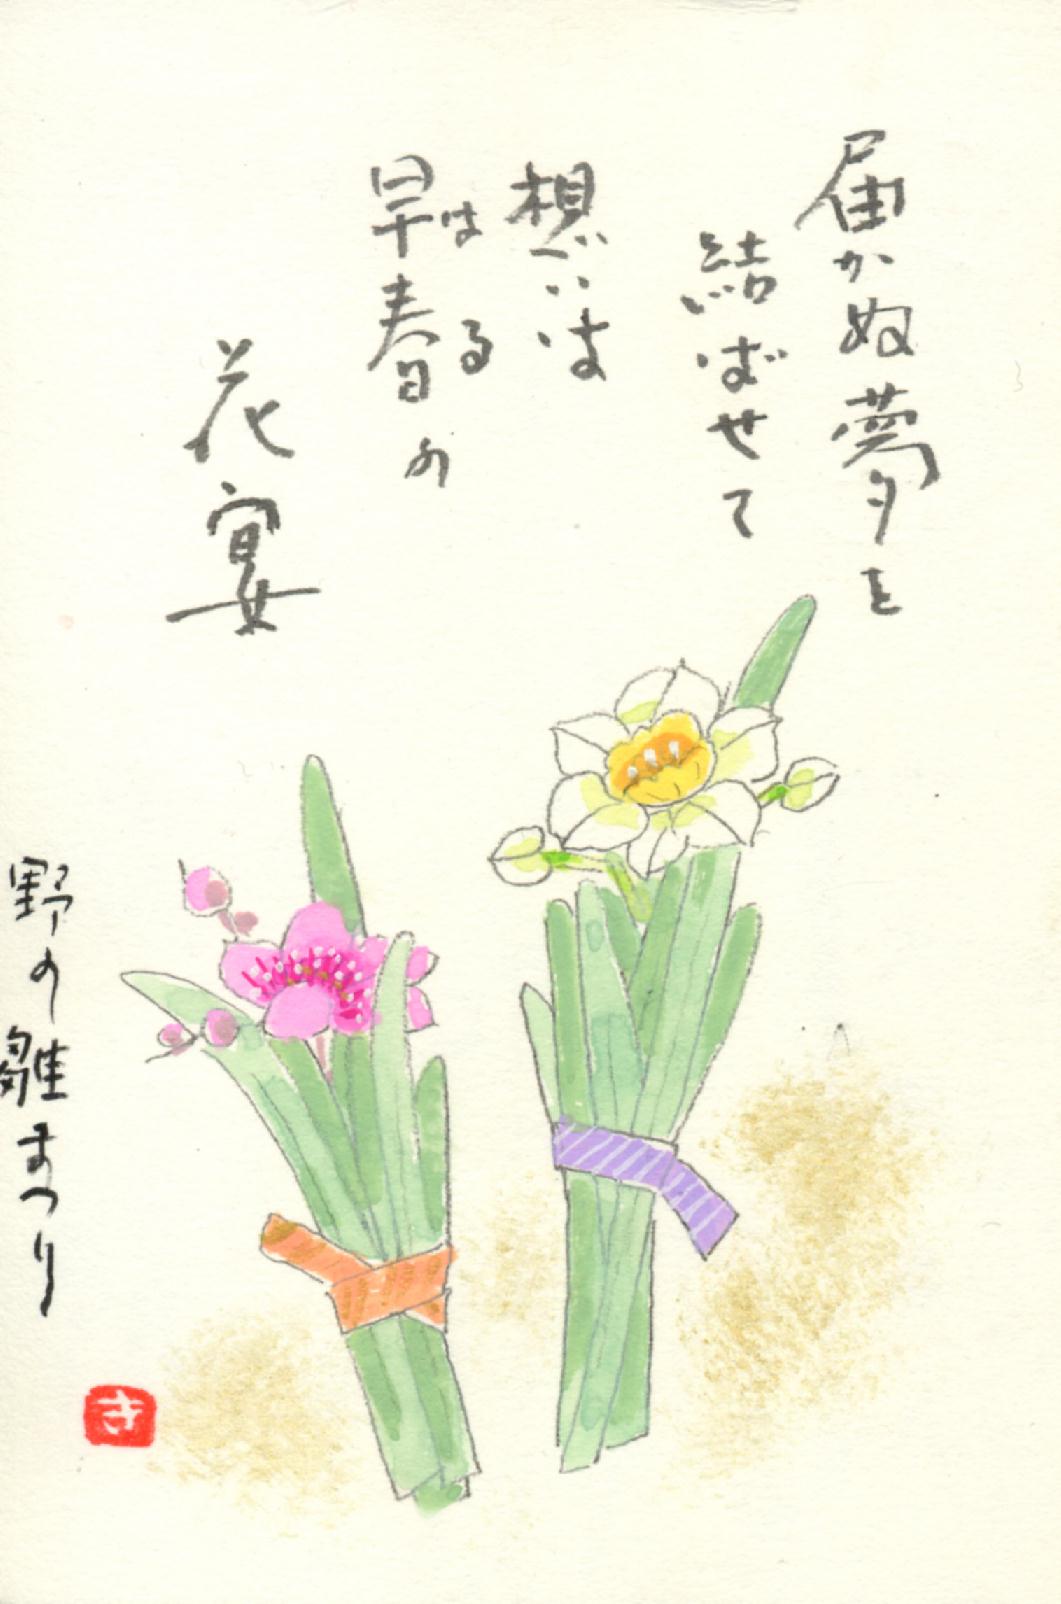 届かぬ夢を
結ばせて
想いは
早春の
はる
花宴
野の雛まつり
き